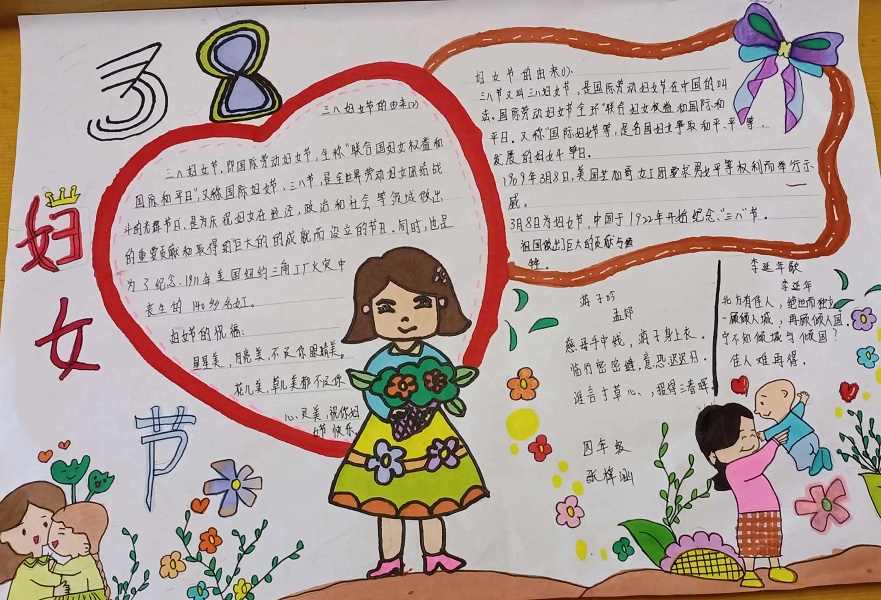 38
妇女节
三八妇女节的由来(2)
三八妇女节,即国际劳动妇女节,全称"联合国妇女权益和
国际和平日",又称国际妇女节、三八节,是全世界劳动妇女团结战
斗的光辉节日,是为庆祝妇女在经济、政治和社会等领域做出
的重要贡献和取得的巨大的成就而设立的节日。同时,也是
为了纪念,1911年美国纽约三角工厂火灾中
丧生的140多名女工。
妇女节的祝福:
星星美,月亮美,不及你眼睛美。
花儿美,草儿美都不及你
心灵美,祝你妇
女节快乐
妇女节的由来(1):
三八节又叫三八妇女节,是国际劳动妇女节在中国的叫
法。国际劳动妇女节全称"联合妇女权益和国际和
平日。又称"国际妇女节等,是各国妇女争取和平、平等、
发展的妇女斗争日。
1909年3月8日,美国芝加哥女工团要求男女平等权利而举行示
威。
3月8日为妇女节,中国于1922年开始纪念"三八"节。
祖国做出巨大的贡献与
游子吟
孟郊
慈母手中线,游子身上衣。
临行密密缝,意恐迟迟归。
谁言寸草心、,报得三春晖。
四年级
李延年歌
李延年
北方有佳人,绝世而独立。
一顾倾人城,再顾倾人国。
宁不知倾城与倾国?
佳人难再得。